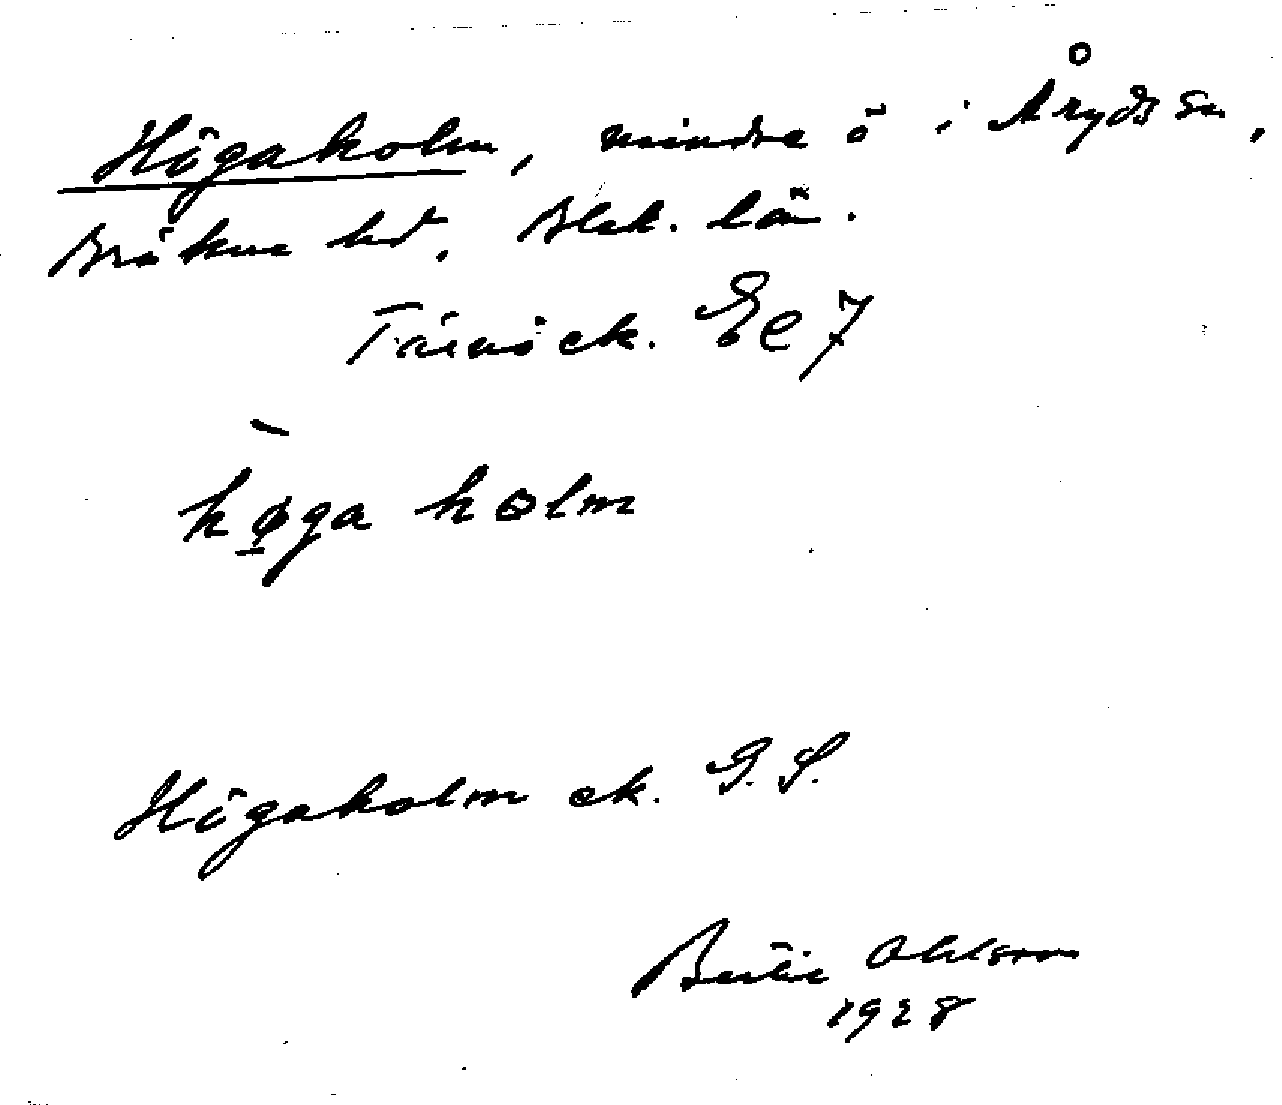 Högaholm, mindre ö i Åryds sn,
Bräkne hd, Blek. län.
Tärnö ek. Ee7
hø̱̀ga hɷlm
Högaholm ek. G.S.
Bertil Ohlsson
1928